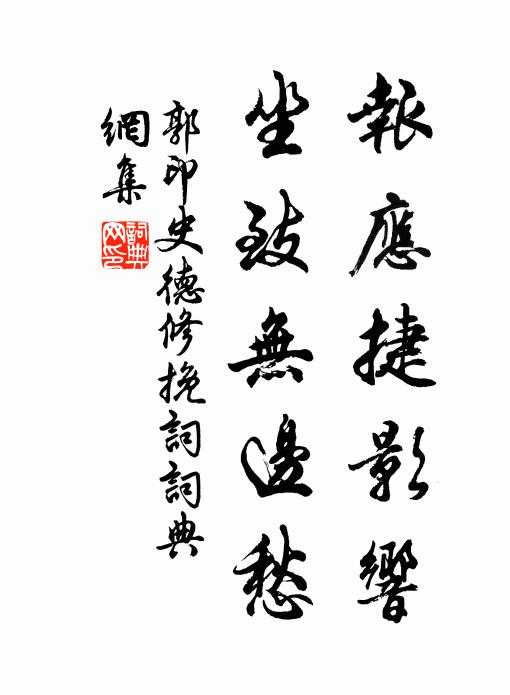 報應捷影響
坐致無邊愁
郭印史德修挽詞詞典
網集
詞典
网印